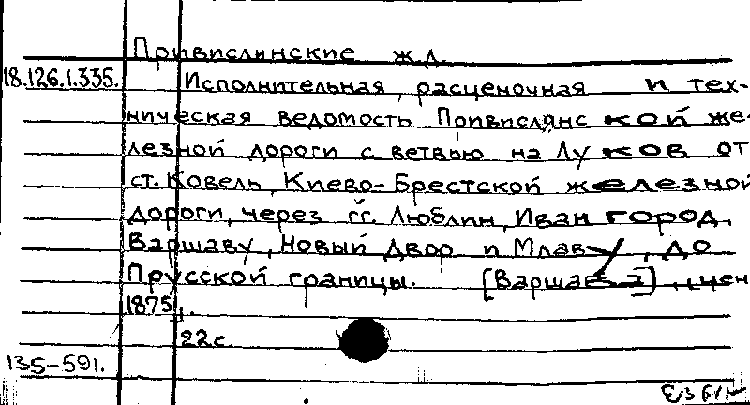 Привислинские ж.д.
18.126.1.335. Исполнительная, расценочная и тех-
ническая ведомость Привислянской же-
лезной дороги с ветвью на Луков от
ст. Ковель, Киево-Брестской железной
дороги, через гг. Люблин, Иван город,
Варшаву, Новый Двор и Млаву, до
Прусской границы. [Варшава], цен
1875.
22с.
135-591.